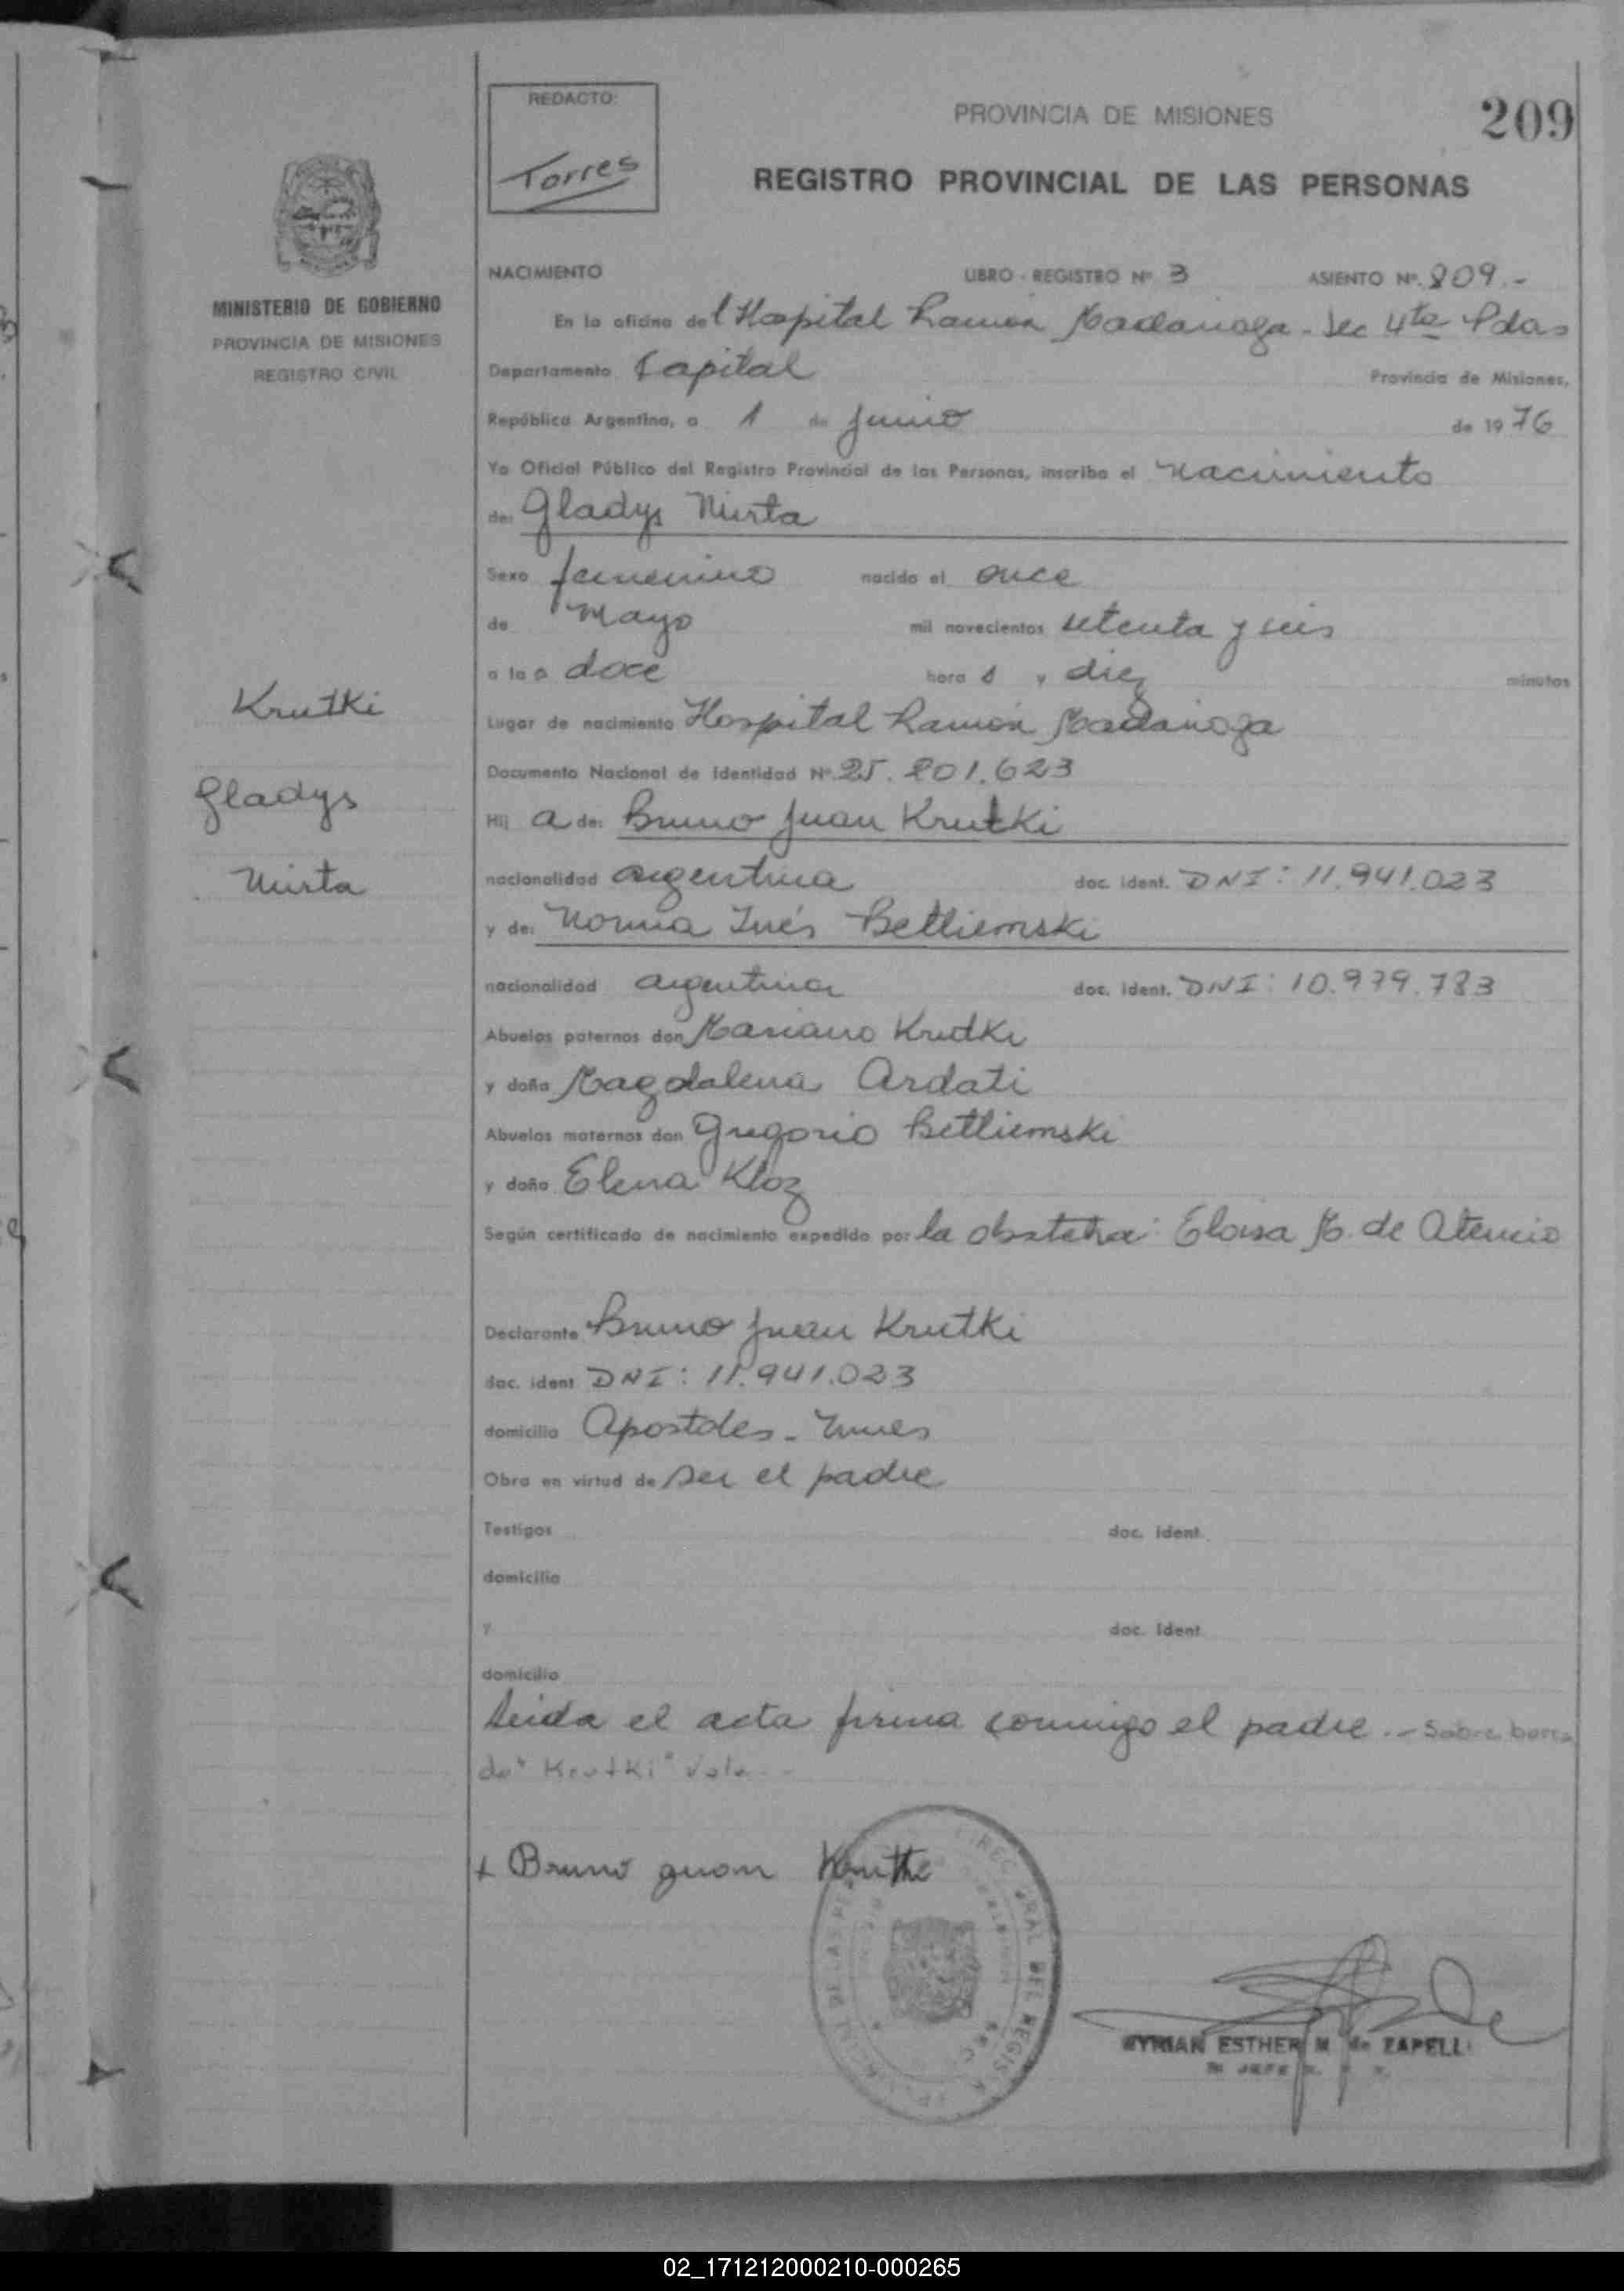 REDACTO:
Torres
PROVINCIA DE MISIONES
209
REGISTRO PROVINCIAL DE LAS PERSONAS
MINISTERIO DE GOBIERNO
PROVINCIA DE MISIONES
REGISTRO CIVIL
NACIMIENTO LIBRO - REGISTRO Nº 3 ASIENTO Nº. 809.-
En la oficina del Hospital Ramón Madariaga - Sec 4ta Pdas
Departamento Capital Provincia de Misiones,
República Argentina, a 1 de junio de 1976
Yo Oficial Público del Registro Provincial de las Personas, inscribo el nacimiento
de: Gladys Mirta
Sexo femenino nacido el once
de mayo mil novecientos setenta y seis
a las doce horas y diez minutos
Lugar de nacimiento Hospital Ramón Madariaga
Documento Nacional de Identidad Nº 25.201.623
Hija de: Bruno Juan Krutki
nacionalidad argentina doc. ident. DNI: 11.941.023
y de: Norma Inés Betliemski
nacionalidad argentina doc. ident. DNI: 10.979.783
Abuelos paternos don Mariano Krutki
y doña Magdalena Ardati
Abuelos maternos don Gregorio Betliemski
y doña Elena Kloz
Según certificado de nacimiento expedido por: la obstetra: Eloisa M. de Atencio
Declarante Bruno Juan Krutki
doc. ident DNI: 11.941.023
domicilio Apostoles - Mnes
Obra en virtud de ser el padre
Testigos doc. ident.
domicilio
y doc. ident.
domicilio
Leida el acta firma conmigo el padre.- Sobre borra
do "Krutki" Vale.-
Krutki
Gladys
Mirta
+ Bruno Juan Krutki
MYRIAN ESTHER M de ZAPELLI
JEFE
02_171212000210-000265